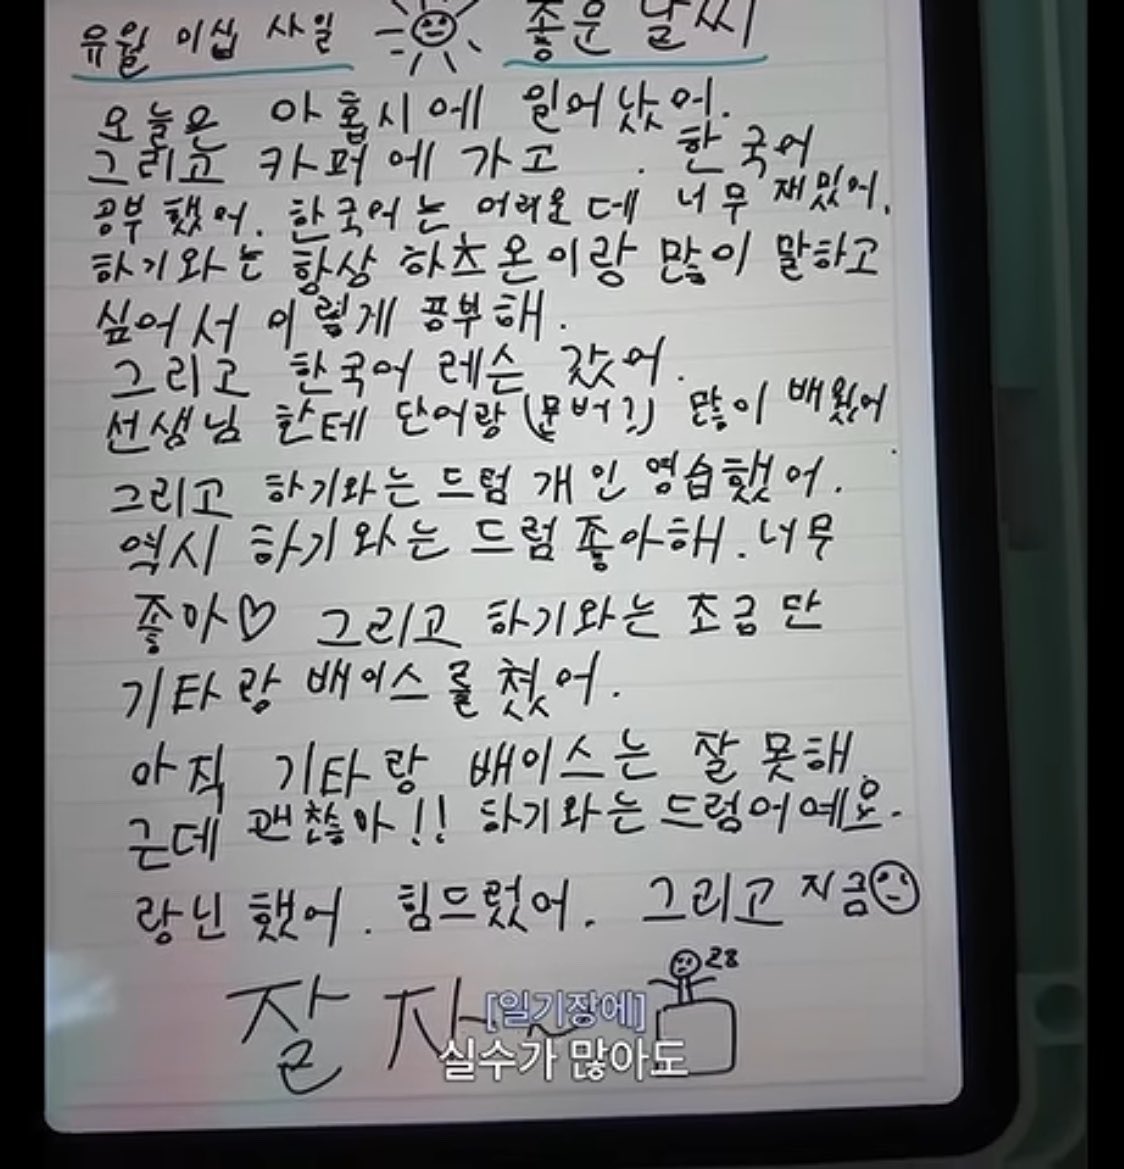 유월 이십 사일 좋운 날씨
오늘은 아홉시에 일어났어.
그리고 카페에 가고 . 한국어
공부했어. 한국어는 어려운데 너무 재밌어.
하기와는 항상 하츠온이랑 많이 말하고
싶어서 이렇게 공부해.
그리고 한국어 레슨 갔어.
선생님 한테 단어랑 (문버?) 많이 배웠어
그리고 하기와는 드럼 개인 영습했어.
역시 하기와는 드럼 좋아해. 너무
좋아♡ 그리고 하기와는 조금 단
기타랑 배이스를 쳤어.
아직 기타랑 배이스는 잘 못해.
근데 괜찮아!! 하기와는 드렁어예요.
랑닌 했어. 힘드렀어. 그리고 지금
28
잘 자~
[일기장에]
실수가 많아도